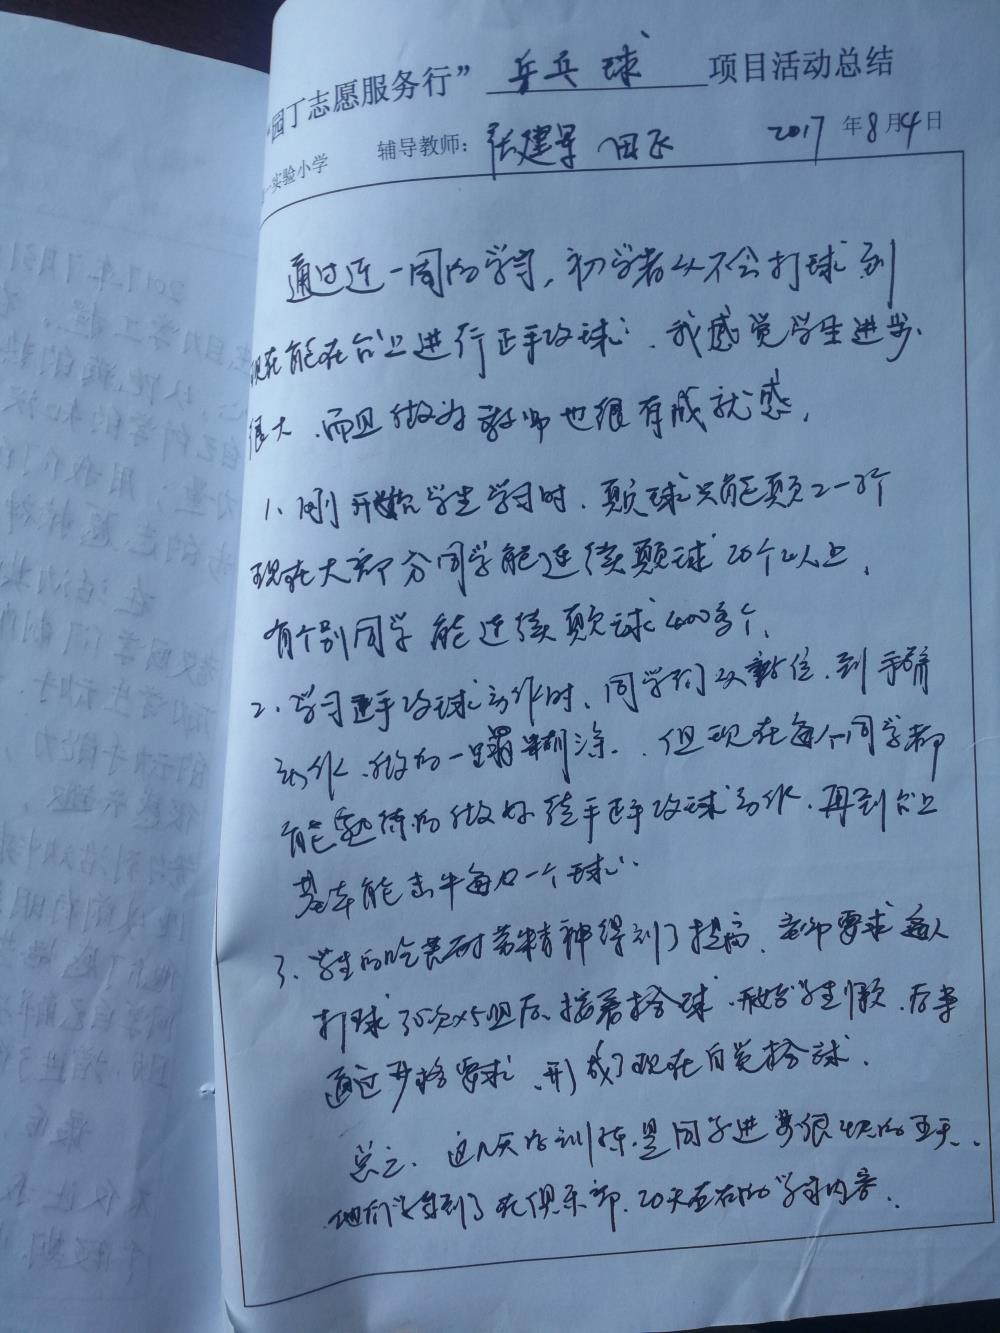 “园丁志愿服务行” 乒乓球 项目活动总结
一实验小学 辅导教师: 张建军 田飞 2017年8月4日
通过近一周的学习,初学者从不会打球到
现在能在台上进行正手攻球、我感觉学生进步
很大、而且做为教师也很有成就感。
1、刚开始学生学习时、颠球只能颠2—3个
现在大部分同学能连续颠球20个以上,
有个别同学能连续颠球400多个。
2、学习正手攻球动作时、同学们从站位、到手臂
动作、做的一塌糊涂、但现在每个同学都
能熟练的做好徒手正手攻球动作、再到台上
基本能击中每一个球。
3、学生的吃苦耐劳精神得到了提高、老师要求每人
打球35次×5组后、接着捡球、开始学生懒、后来
通过严格要求、形成了现在自觉捡球。
总之、这几天的训练、是同学进步很快的五天、
他们学到了在俱乐部、20天左右的学习内容。